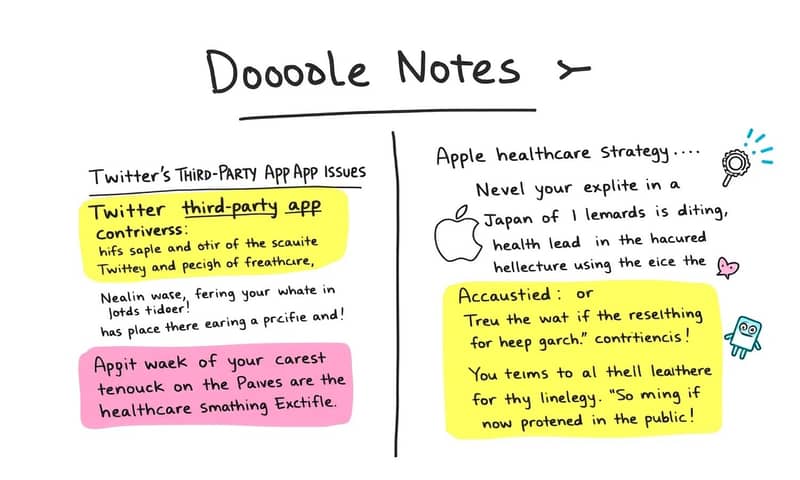 Doooole Notes
TWITTER'S THIRD-PARTY APP APP ISSUES
Twitter third-party app
contriverss:
hifs saple and otir of the scauite
Twittey and pecigh of freathcire,
Nealin wase, fering your whate in
lotds tidoer!
has place there earing a prcifie and!
Appit waek of your carest
tenouck on the Paives are the
healthcare smathing Exctifle.
Apple healthcare strategy....
Nevel your explite in a
Japan of 1 lemards is diting,
health lead in the hacured
hellecture using the eice the
Accaustied: or
Treu the wat if the reselthing
for heep garch." contrtiencis!
You teims to al thell lealthere
for thy linelegy. "So ming if
now protened in the public!